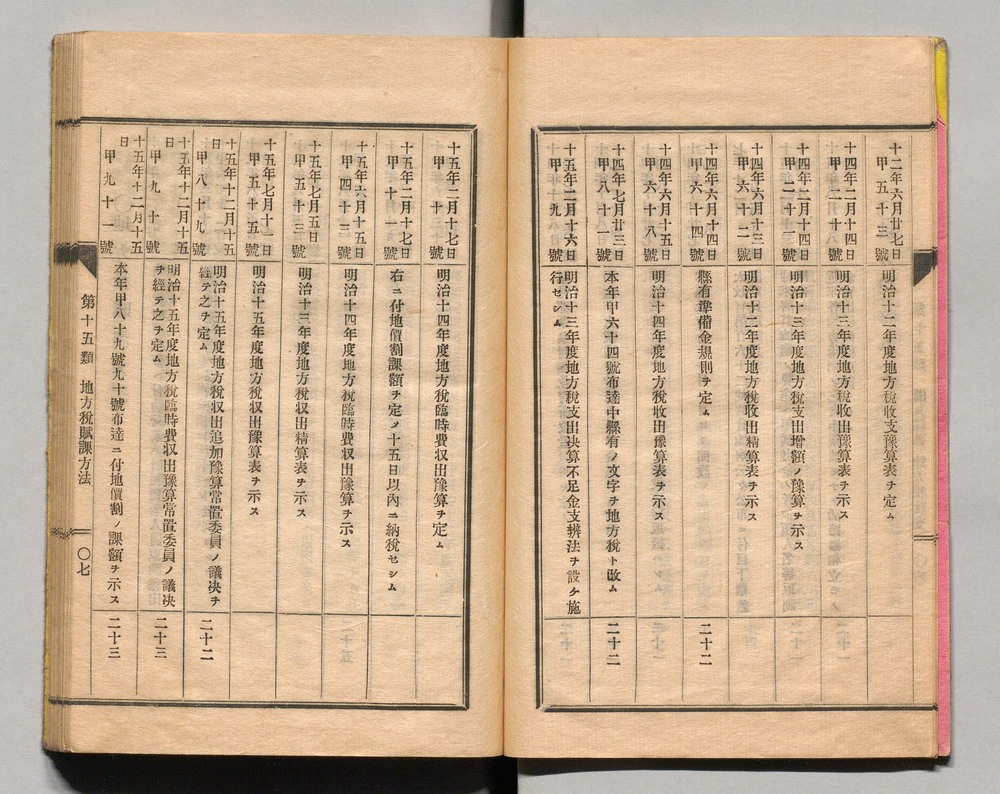 十二年六月廿七日
甲五十三號
明治十二年度地方稅收支豫算表ヲ定ム
十四年二月十四日
甲二十八號
明治十三年度地方稅收出豫算表ヲ示ス
十四年二月十四日
甲二十一號
明治十三年度地方稅支出增額ノ豫算ヲ示ス
十四年六月十三日
甲六十二號
明治十二年度地方稅收出精算表ヲ示ス
十四年六月十四日
甲六十四號
縣有準備金規則ヲ定ム
二十二
十四年六月十五日
甲六十八號
明治十四年度地方稅收出豫算表ヲ示ス
十四年七月廿三日
甲八十一號
本年甲六十四號布達中縣有ノ文字ヲ地方稅ト改ム
二十二
十五年二月十六日
甲十九號
明治十三年度地方稅支出決算不足金支辨法ヲ設ケ施
行セシム
十五年二月十七日
甲十號
明治十四年度地方稅臨時費収出豫算ヲ定ム
十五年二月十七日
甲十一號
右ニ付地價割課額ヲ定メ十五日以內ニ納稅セシム
十五年六月十五日
甲四十三號
明治十四年度地方稅臨時費収出豫算ヲ示ス
十五年七月五日
甲五十三號
明治十三年度地方稅収出精算表ヲ示ス
十五年七月十一日
甲五十五號
明治十五年度地方稅収出豫算表ヲ示ス
十五年十二月十五
日
甲八十九號
明治十五年度地方稅収出追加豫算常置委員ノ議決ヲ
經テ之ヲ定ム
二十二
十五年十二月十五
日
甲九十號
明治十五年度地方稅臨時費収出豫算常置委員ノ議決
ヲ經テ之ヲ定ム
二十三
十五年十二月十五
日
甲九十一號
本年甲八十九號九十號布達ニ付地價割ノ課額ヲ示ス
二十三
第十五類 地方稅賦課方法
〇七